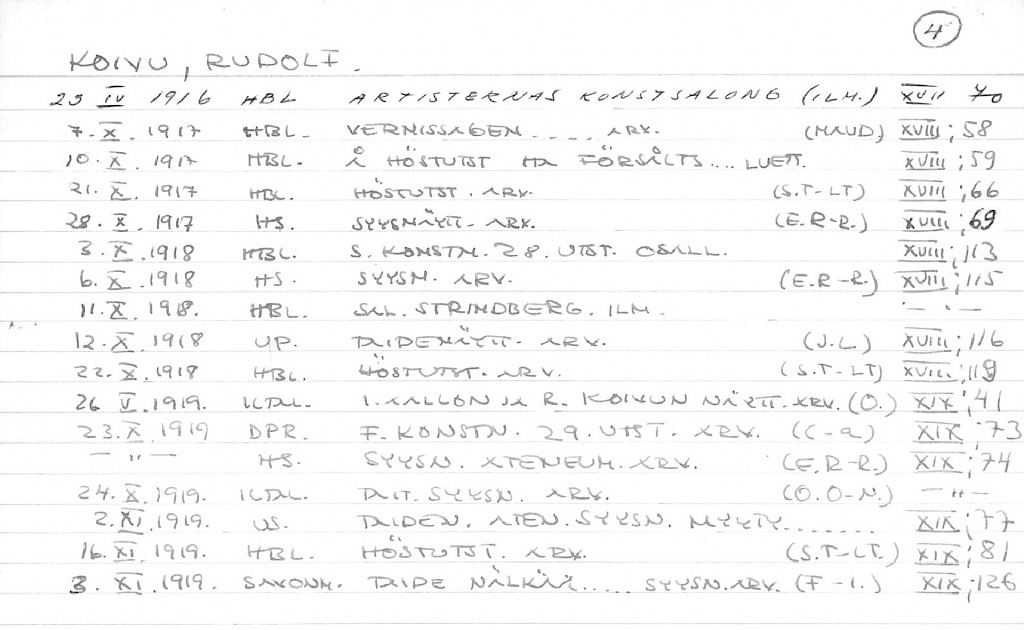 4
KOIVU, RUDOLF.
25 IV 1916 HBL ARTISTERNAS KONSTSALONG (ILM.) XVII 70
7. X. 1917 HBL. VERNISSAGEN.... ARV. (MAUD) XVIII; 58
10. X. 1917 HBL. Å HÖSTUTST HA FÖRSÅLTS.... LUETT. XVIII; 59
21. X. 1917 HBL. HÖSTUTST. ARV. (S.T-LT) XVIII; 66
28. X. 1917 HS. SYYSNÄYTT. ARV. (E.R-R.) XVIII; 69
3. X. 1918 HBL. S. KONSTN. 28. UTST. OSALL. XVIII; 113
6. X. 1918 HS. SYYSN. ARV. (E.R-R.) XVIII; 115
11. X. 1918. HBL. SAL. STRINDBERG. ILM. — " —
12. X. 1918 UP. TAIDENÄYTT. ARV. (J.L.) XVIII; 116
22. X. 1918 HBL. HÖSTUTST. ARV. (S.T-LT) XVIII; 119
26 V. 1919. ILTAL. I. AALLON JA R. KOIVUN NÄYTT. ARV. (O.) XIX; 41
23. X. 1919 DPR. F. KONSTN. 29. UTST. ARV. (C-a) XIX; 73
— " — HS. SYYSN. ATENEUM. ARV. (E.R-R.) XIX; 74
24. X. 1919. ILTAL. TAIT. SYYSN. ARV. (O.O-N.) — " —
2. XI. 1919. US. TAIDEN. ATEN. SYYSN. MYYTY....... XIX; 77
16. XI. 1919. HBL. HÖSTUTST. ARV. (S.T-LT.) XIX; 81
3. XI. 1919. SAVONM. TAIDE NÄLKÄÄ..... SYYSN. ARV. (F-I.) XIX; 126